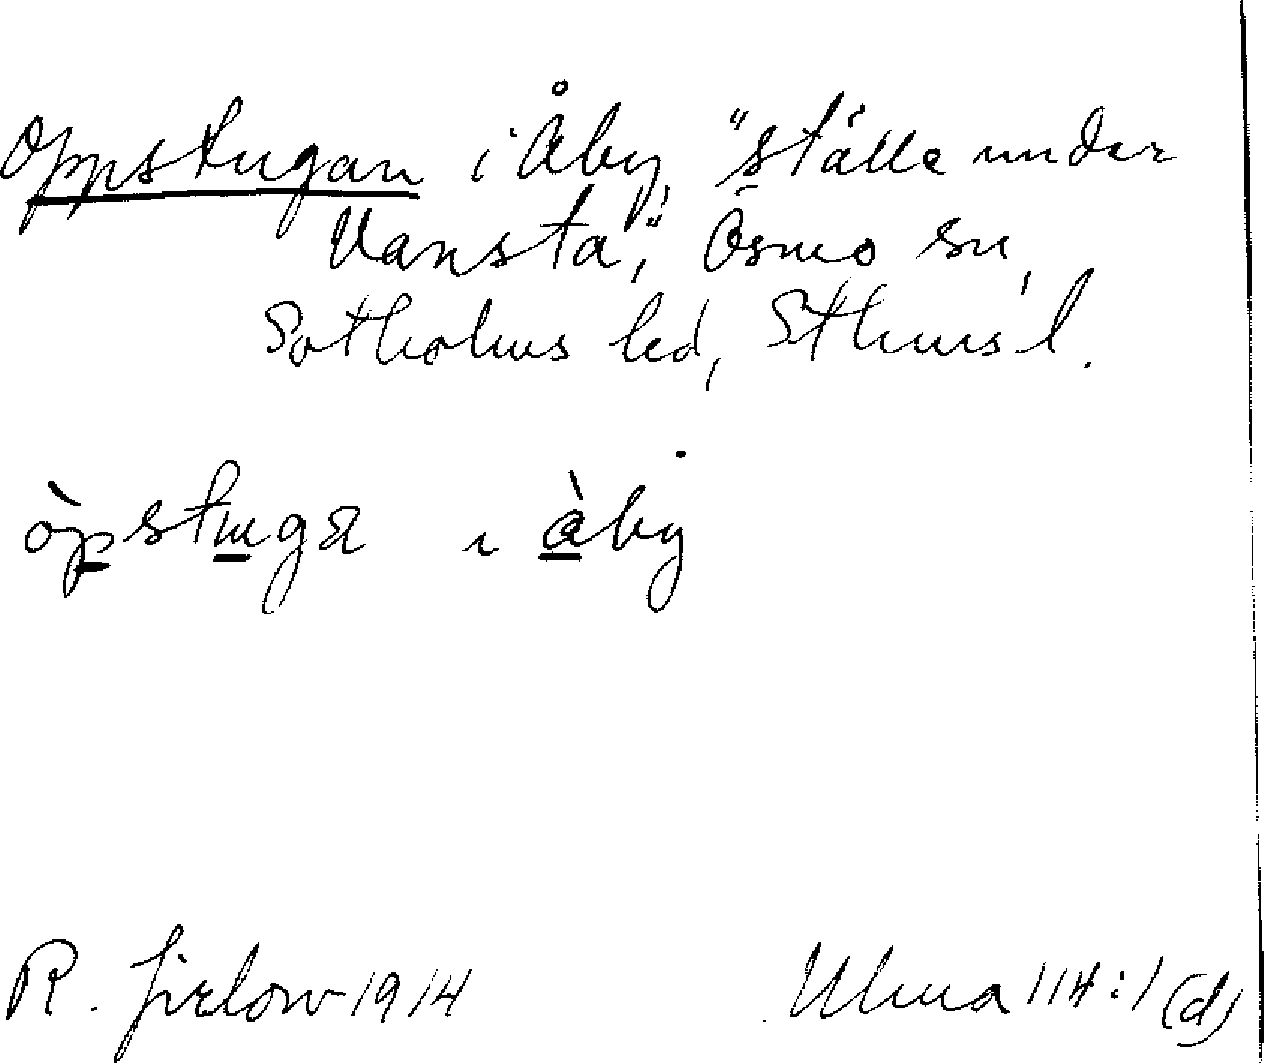 Oppstugan i Åby, "ställe under
Vansta", Ösmo sn,
Sotholms hd, Sthms l.
òpstuga ı àby
R. Jirlow 1914 Ulma 114:1 (d)